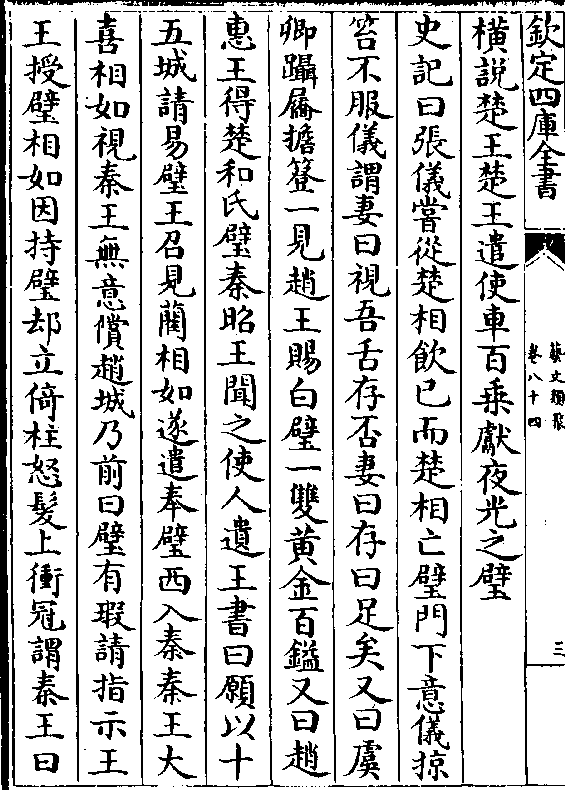 欽定四庫全書
藝文類聚
卷八十四
三
橫說楚王楚王遣使車百乘獻夜光之璧
史記曰張儀嘗從楚相飲已而楚相亡璧門下意儀掠
笞不服儀謂妻曰視吾舌存否妻曰存曰足矣又曰虞
卿躡屩擔簦一見趙王賜白璧一雙黃金百鎰又曰趙
惠王得楚和氏璧秦昭王聞之使人遺王書曰願以十
五城請易璧王召見藺相如遂遣奉璧西入秦秦王大
喜相如視秦王無意償趙城乃前曰璧有瑕請指示王
王授璧相如因持璧却立倚柱怒髮上衝冠謂秦王曰